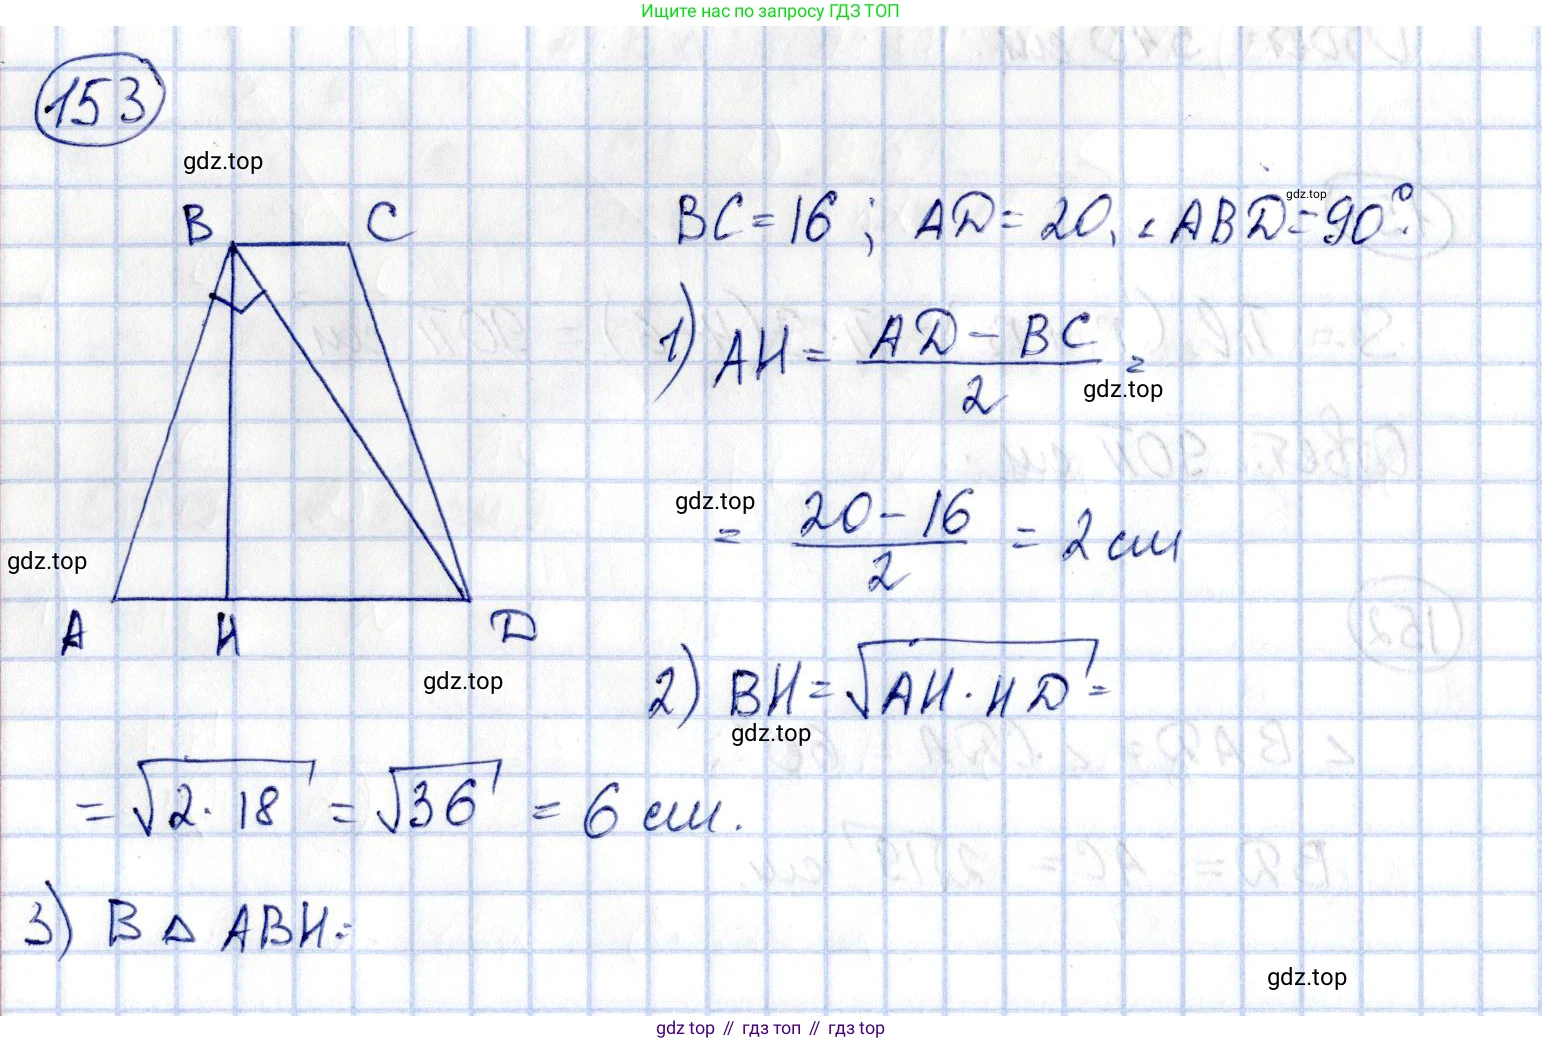 Ищите нас по запросу ГДЗ ТОП
153
gdz.top
B C
BC = 16 ; AD = 20, ∠ABD = 90°.
gdz.top
1) AH = (AD − BC)/2 =
gdz.top
gdz.top
= (20 − 16)/2 = 2 см
gdz.top
A H D
gdz.top
2) BH = √(AH · HD) =
gdz.top
= √(2 · 18) = √36 = 6 см.
3) В △ ABH:
gdz.top
gdz top // гдз топ // гдз top